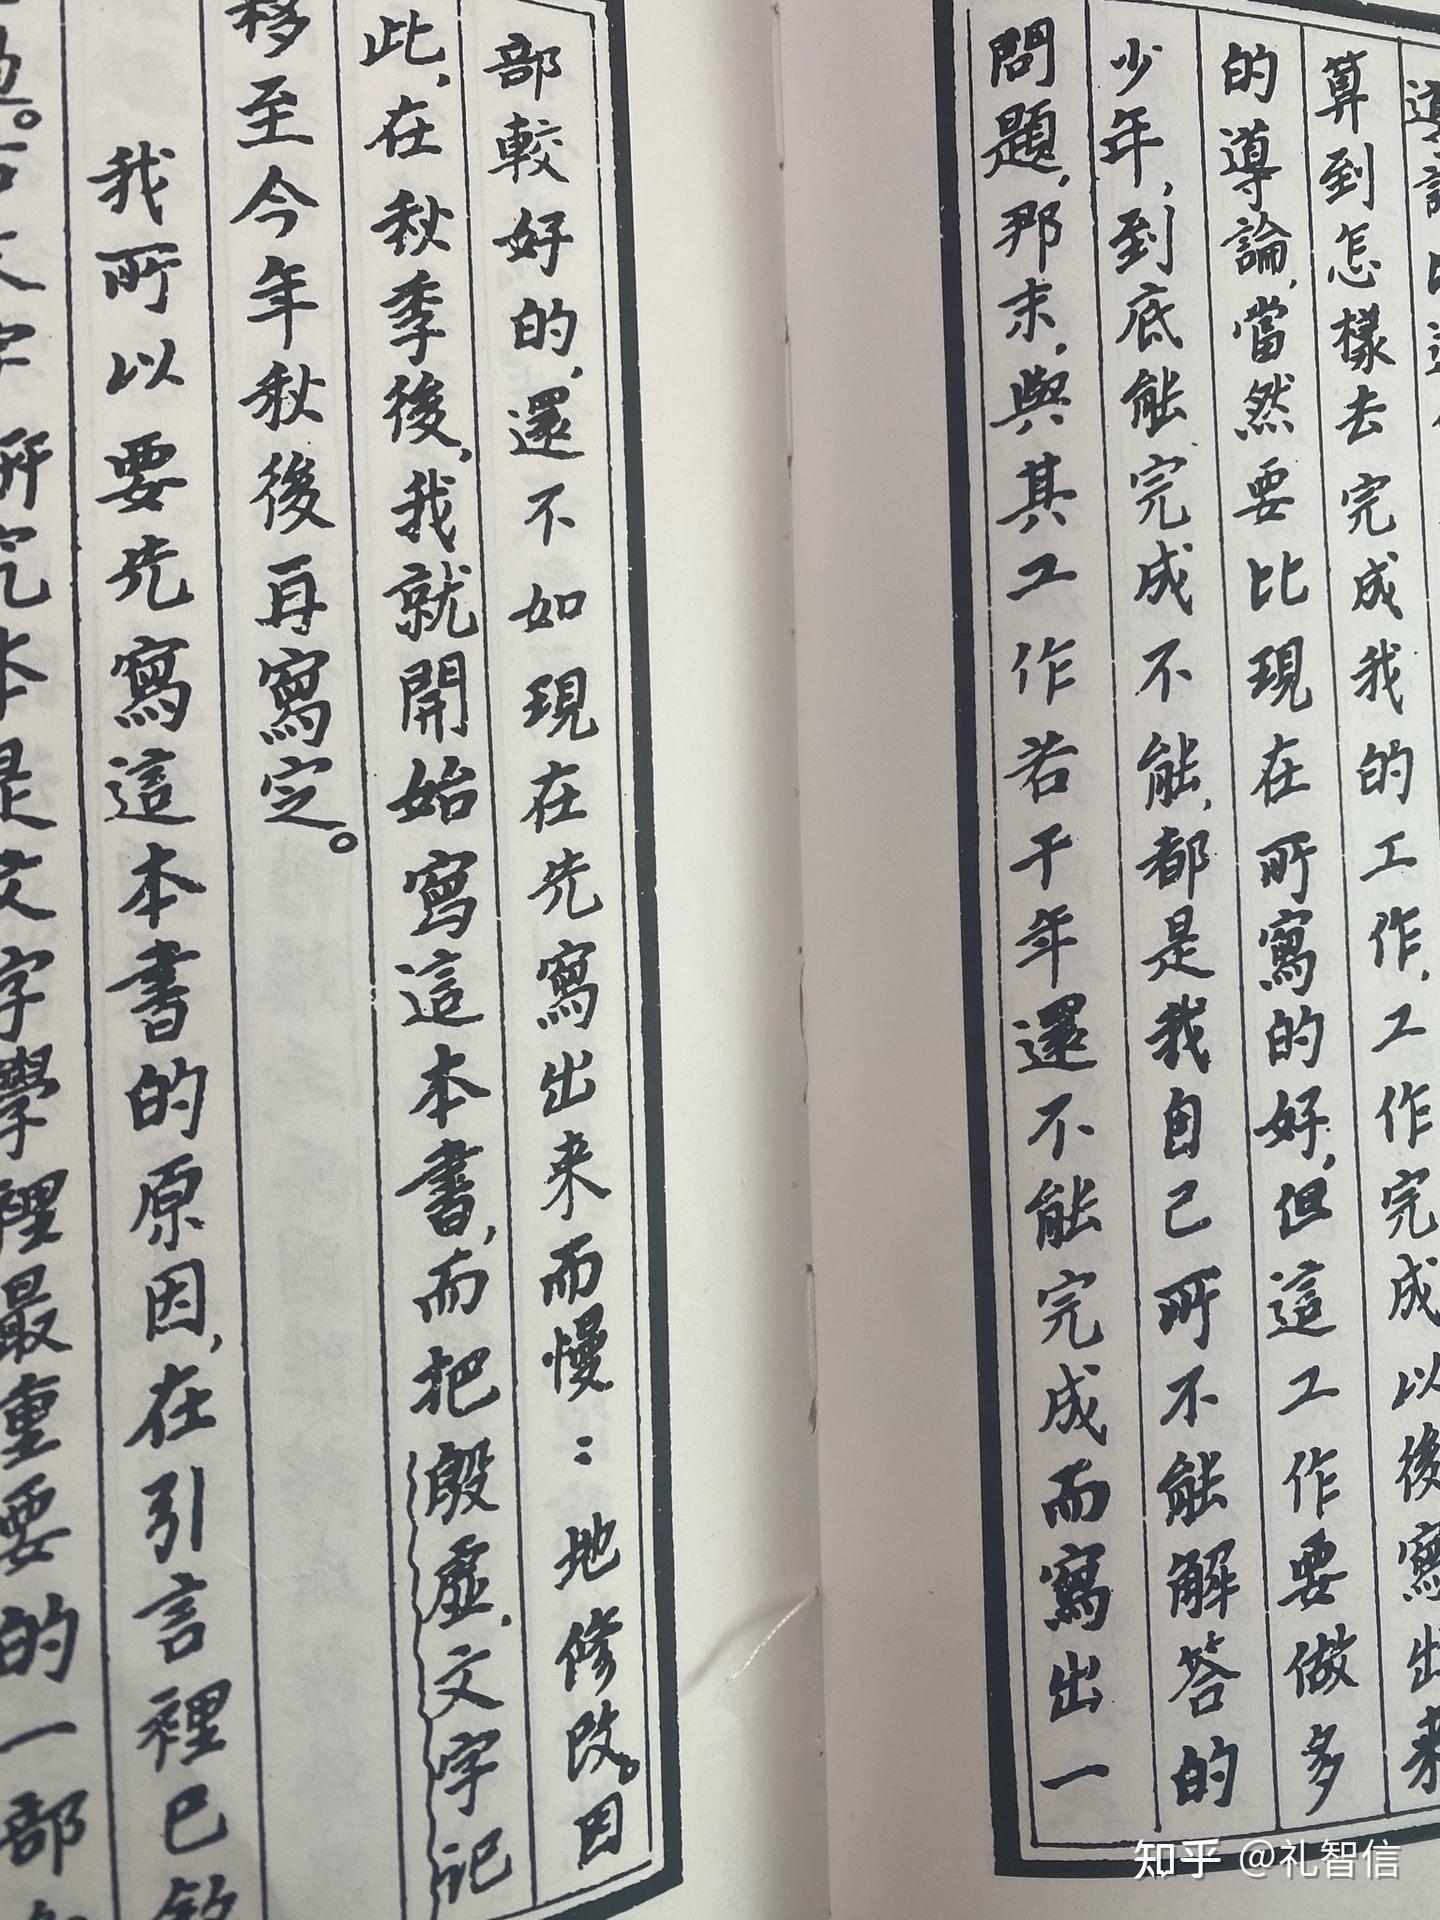 算到怎樣去完成我的工作,工作完成以後寫出来
的導論,當然要比現在所寫的好,但這工作要做多
少年,到底能完成不能,都是我自己所不能解答的
問題,那末,與其工作若干年還不能完成而寫出一
部較好的,還不如現在先寫出来而慢：地修改。因
此,在秋季後,我就開始寫這本書,而把殷虛文字記
移至今年秋後再寫定。
我所以要先寫這本書的原因,在引言裡已敘
研究本是文字學裡最重要的一部
知乎 @礼智信